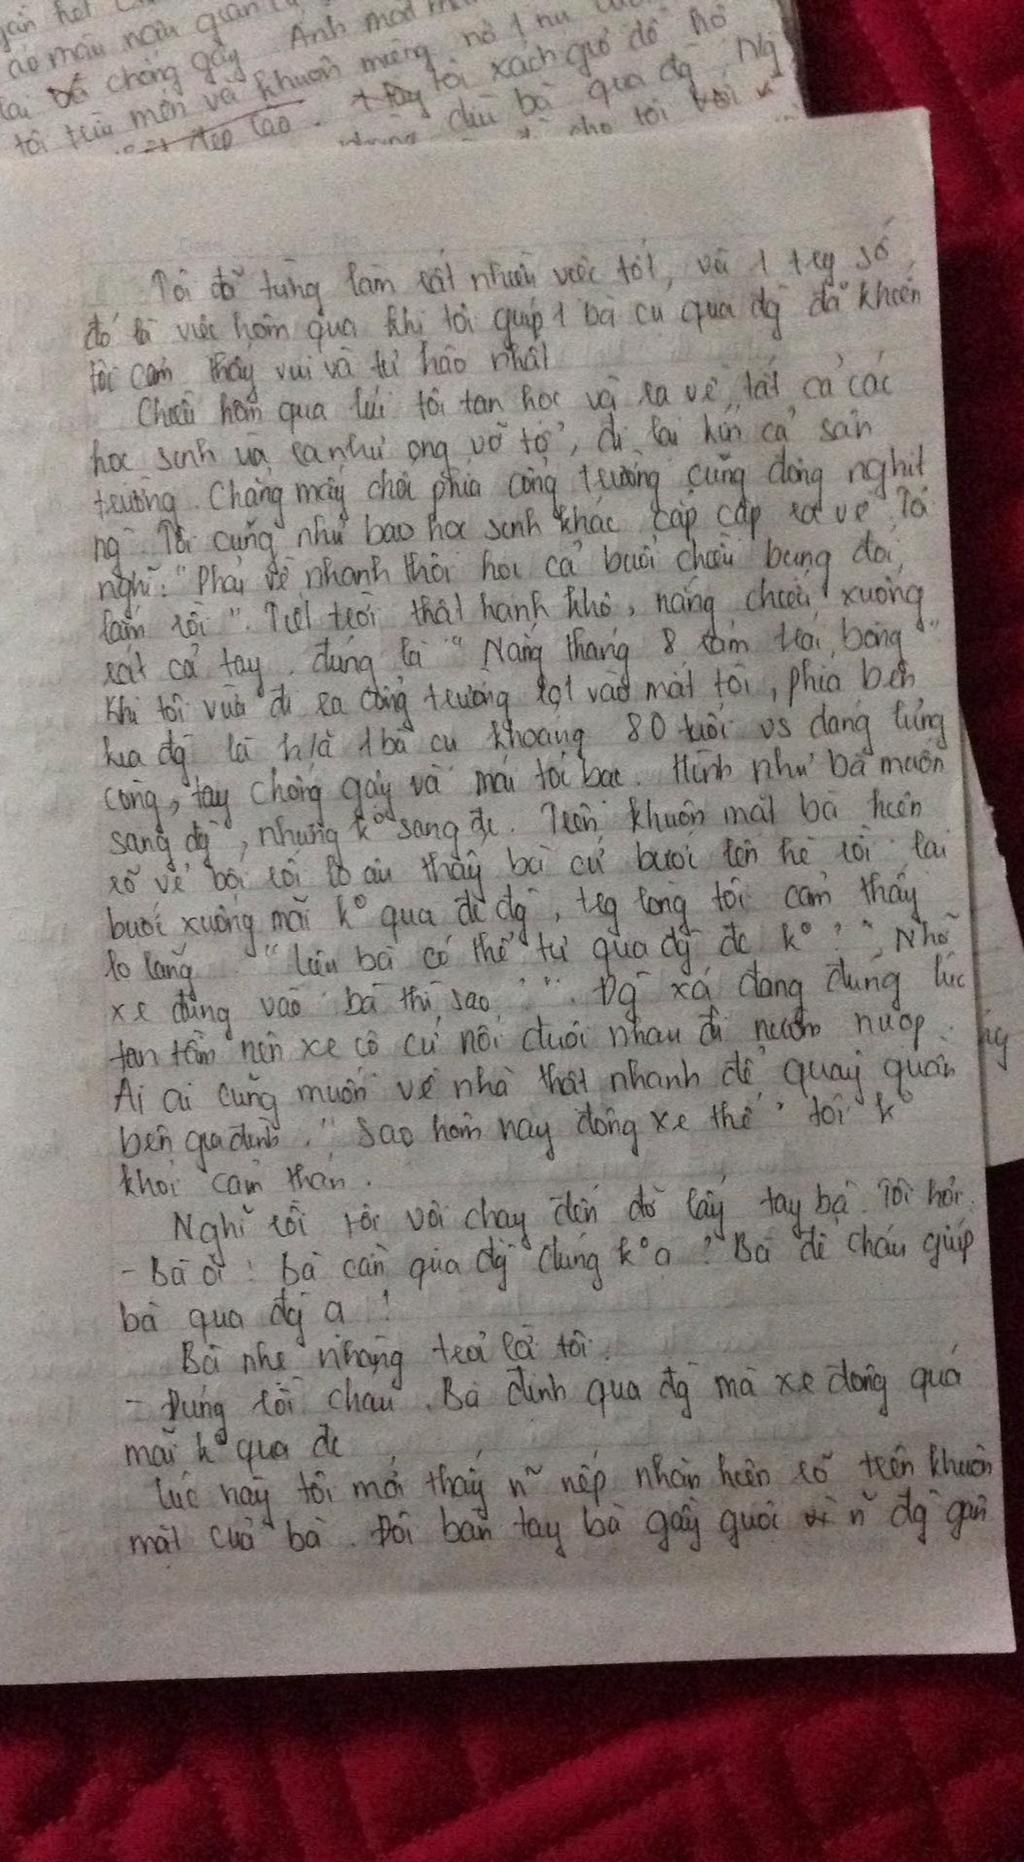 áo màu nâu quan
tai chống gậy Anh
tôi trìu mến và khuôn miệng nở 1 nụ
đẹp lão. tay tôi xách giỏ đồ hộ
dìu bà qua đg Ng
cho tôi
Tôi đã từng làm rất nhiều việc tốt, và 1 trg số
đó là việc hôm qua khi tôi giúp 1 bà cụ qua đg đã khiến
tôi cảm thấy vui và tự hào nhất
Chiều hôm qua lúc tôi tan học và ra về, tất cả các
học sinh ùa ra như ong vỡ tổ, đi lại kín cả sân
trường. Chẳng mấy chốc phía cổng trường cũng đông nghịt
ng. Tôi cũng như bao học sinh khác cắp cặp ra về. Tôi
nghĩ: "Phải về nhanh thôi học cả buổi chiều bụng đói
lắm rồi". Tiết trời thật hanh khô, nắng chiếu xuống
rát cả tay. đúng là "Nắng tháng 8 rám trái bòng"
Khi tôi vừa đi ra cổng trường lọt vào mắt tôi, phía bên
kia đg là h/ả 1 bà cụ khoảng 80 tuổi vs dáng lưng
còng, tay chống gậy và mái tóc bạc. Hình như bà muốn
sang đg, nhưng k° sang đc. Trên khuôn mặt bà hiện
rõ vẻ bối rối lo âu thấy bà cứ bước lên hè rồi lại
bước xuống mãi k° qua đc đg, trg lòng tôi cảm thấy
lo lắng "liệu bà có thể tự qua đg đc k°?", "Nhỡ
xe đụng vào bà thì sao?". Đg xá đang đúng lúc
tan tầm nên xe cộ cứ nối đuôi nhau đi nườm nượp.
Ai ai cũng muốn về nhà thật nhanh để quây quần
bên gia đình. "Sao hôm nay đông xe thế" tôi k°
khỏi cảm thán.
Nghĩ rồi tôi vội chạy đến đỡ lấy tay bà. Tôi hỏi:
- Bà ơi! bà cần qua đg đúng k° ạ? Bà để cháu giúp
bà qua đg ạ!
Bà nhẹ nhàng trả lời tôi:
- Đúng rồi cháu. Bà định qua đg mà xe đông quá
mãi k° qua đc
Lúc này tôi mới thấy n~ nếp nhăn hiện rõ trên khuôn
mặt của bà. Đôi bàn tay bà gầy guộc n~ đg gân